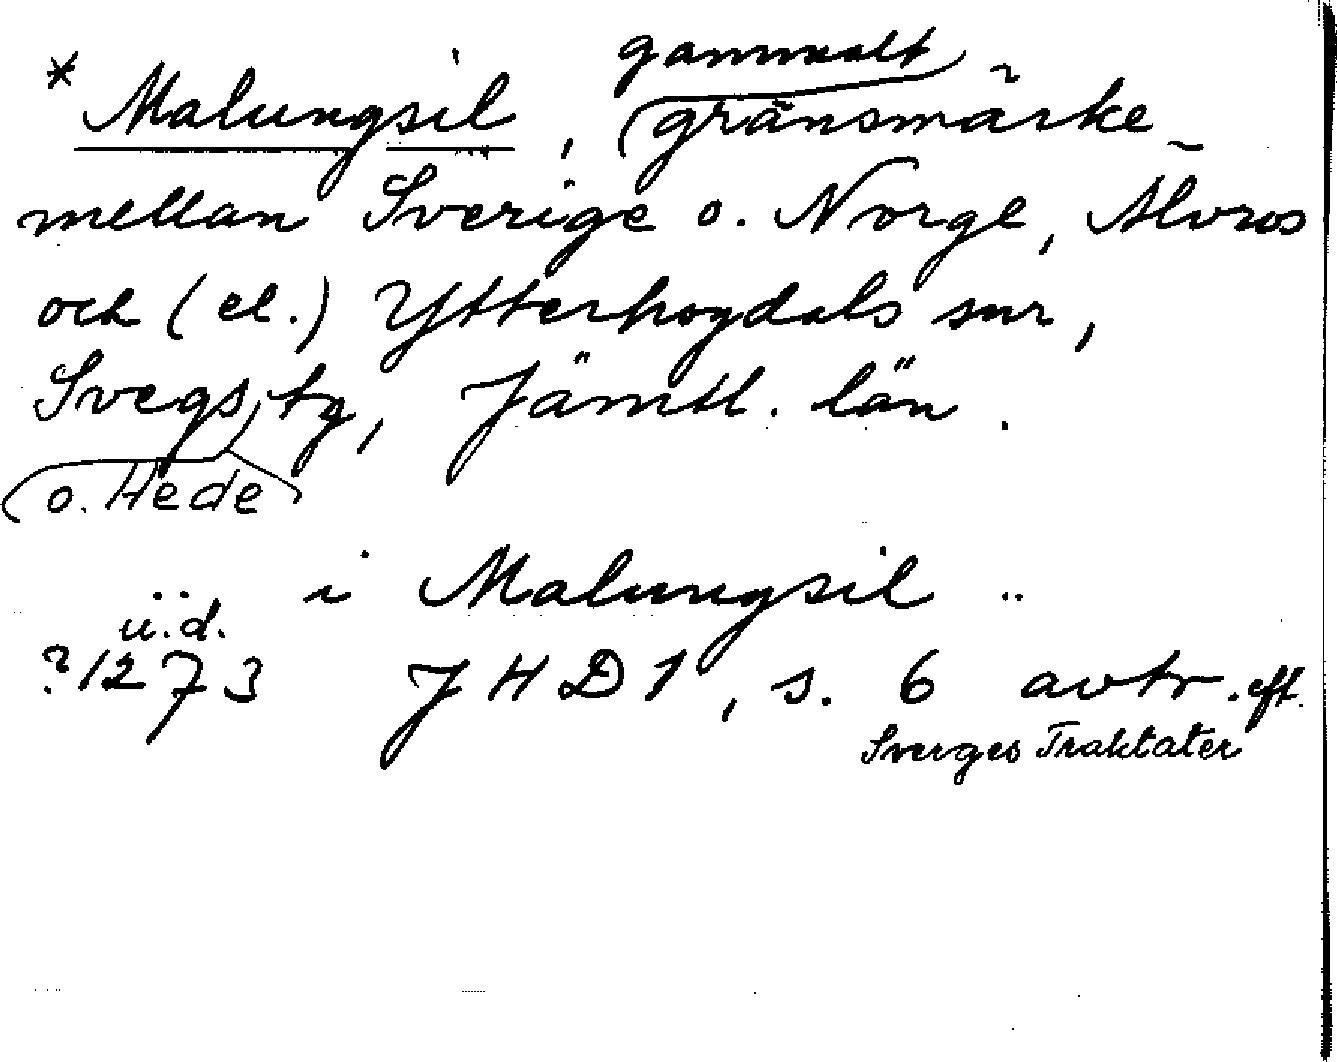 * Malungsil, gammalt gränsmärke
mellan Sverige o. Norge, Älvros
och (el.) Ytterhogdals snr,
Svegs tg, Jämtl. län.
o. Hede
.. i Malungsil ..
u.d.
?1273 JHD 1, s. 6 avtr. eft.
Sverges Traktater